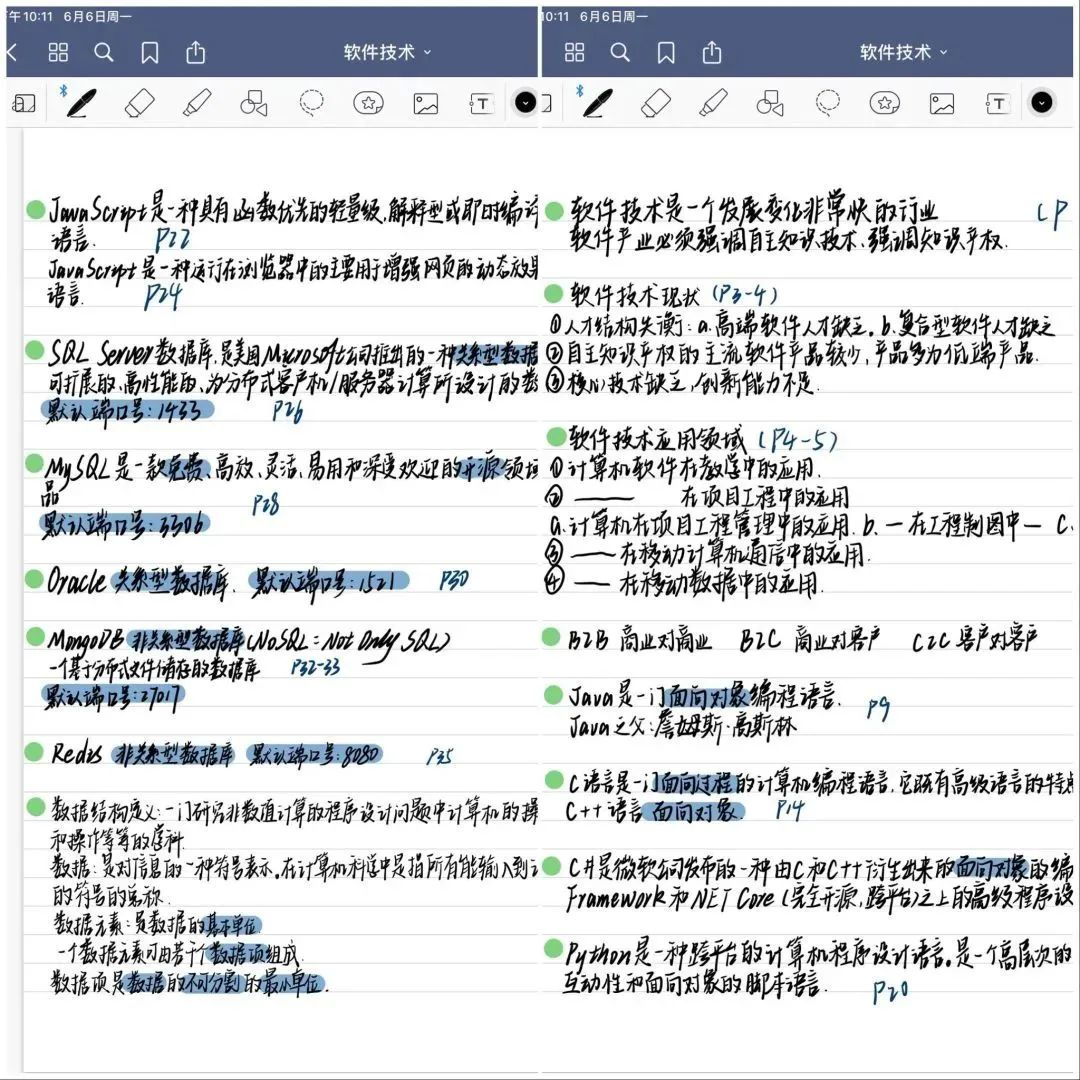 午10:11 6月6日周一
软件技术
T
JavaScript是一种具有函数优先的轻量级,解释型或即时编译
语言.
P22
JavaScript是一种运行在浏览器中的主要用于增强网页的动态效果
语言.
P24
SQL Server数据库,是美国Microsoft公司推出的一种关系型数据
可扩展的、高性能的、为分布式客户机/服务器计算所设计的数
默认端口号:1433 P26
MySQL是一款免费、高效、灵活、易用和深受欢迎的开源领域
品
P28
默认端口号:3306
Oracle 关系型数据库. 默认端口号:1521 P30
MongoDB 非关系型数据库(NoSQL=Not Only SQL)
一个基于分布式文件储存的数据库 P32-33
默认端口号:27017
Redis 非关系型数据库 默认端口号:8080 P35
数据结构定义:一门研究非数值计算的程序设计问题中计算机的操
和操作等等的学科.
数据:是对信息的一种符号表示.在计算机科学中是指所有能输入到
的符号的总称.
数据元素:是数据的基本单位
一个数据元素可由若干个数据项组成.
数据项是数据的不可分割的最小单位.
10:11 6月6日周一
软件技术
T
软件技术是一个发展变化非常快的行业 (P
软件产业必须强调自主知识技术、强调知识产权.
软件技术现状 (P3-4)
①人才结构失衡:a.高端软件人才缺乏. b.复合型软件人才缺乏
②自主知识产权的主流软件产品较少,产品多为低端产品.
③核心技术缺乏,创新能力不足.
软件技术应用领域 (P4-5)
①计算机软件在教学中的应用.
② —— 在项目工程中的应用
a.计算机在项目工程管理中的应用. b. — 在工程制图中 — C.
③ —— 在移动计算机通信中的应用.
④ —— 在移动数据中的应用.
B2B 商业对商业 B2C 商业对客户 C2C 客户对客户
Java是一门面向对象编程语言. P9
Java之父:詹姆斯·高斯林
C语言是一门面向过程的计算机编程语言,它既有高级语言的特点
C++语言 面向对象. P14
C#是微软公司发布的一种由C和C++衍生出来的面向对象的编
Framework和.NET Core(完全开源,跨平台)之上的高级程序设
Python是一种跨平台的计算机程序设计语言.是一个高层次的
互动性和面向对象的脚本语言. P20